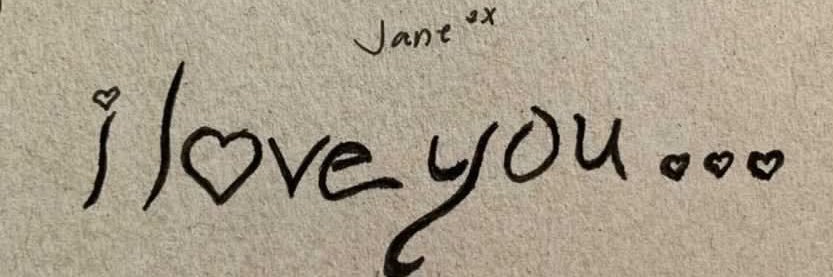 Jane ox
i love you...